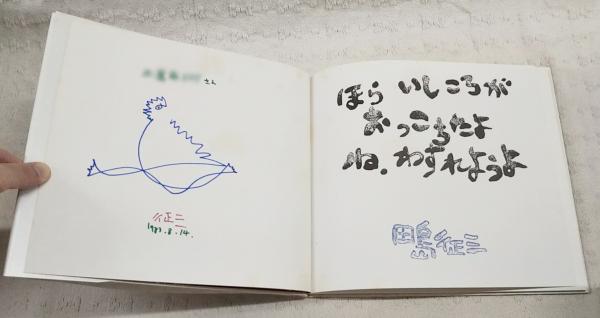 さん
征三
1987.8.14.
ほら いしころが
おっこちたよ
ね、わすれようよ
田島征三